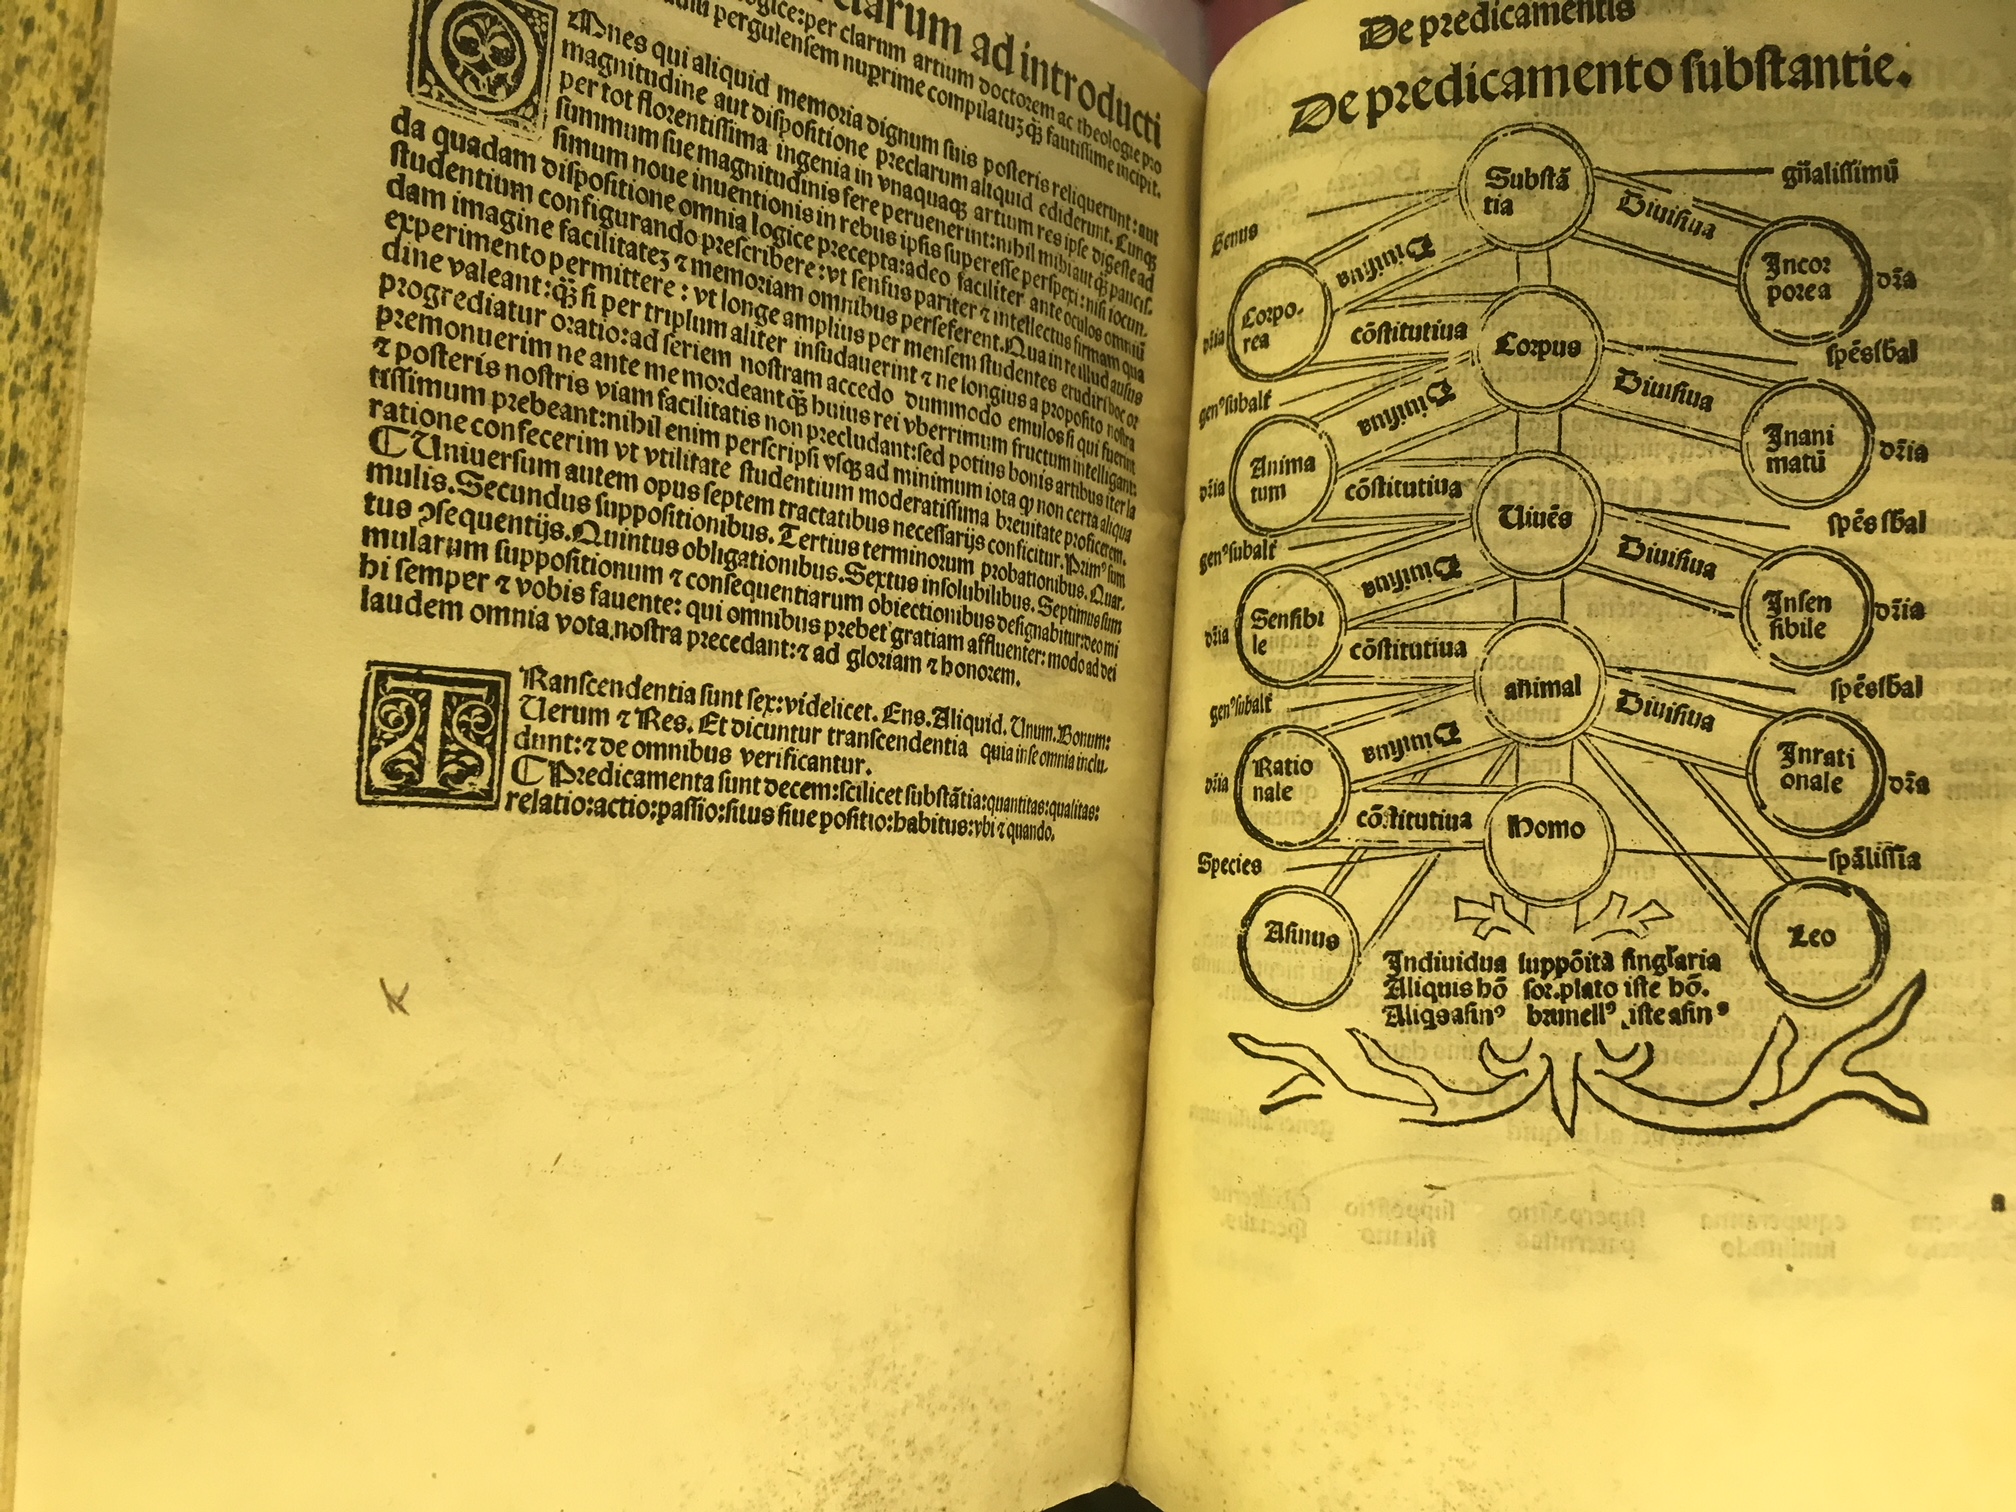 clarum ad introducti
logice:per clarum artium doctorem ac theologie pro
pergulensem nuprime compilatuʒ q̃ʒ faustissime incipit.
OMnes qui aliquid memoria dignum suis posteris reliquerunt: aut
magnitudine aut dispositione preclarum aliquid ediderunt. Cunqꝫ
per tot florentissima ingenia in vnaquaqꝫ artium res ipse digeste ad
summum sue magnitudinis fere peruenerint:nihil mihi aut q̃ʒ paucis-
simum noue inuentionis in rebus ipsis superesse perspexi: nisi iocun-
da quadam dispositione omnia logice precepta:adeo faciliter ante oculos omniũ
studentium configurando prescribere: vt sensus pariter ⁊ intellectus firmam qua
dam imagine facilitateʒ ⁊ memoriam omnibus perseferent. Qua in re illud ausus
experimento permittere : vt longe amplius per mensem studentes erudiri hoc or
dine valeant: q̃ʒ si per triplum aliter insudauerint ⁊ ne longius a proposito nostra
progrediatur oratio: ad seriem nostram accedo dummodo emulos si qui fuerint
premonuerim ne ante me mordeant q̃ʒ huius rei vberrimum fructum intelligant:
⁊ posteris nostris viam facilitatis non precludant: sed potius bonis artibus iter la
tissimum prebeant: nihil enim perscripsi vsqꝫ ad minimum iota qɔ non certa aliqua
ratione confecerim vt vtilitate studentium moderatissima breuitate proficerem.
¶ Uniuersum autem opus septem tractatibus necessarijs conficitur. Prim⁹ sum
mulis. Secundus suppositionibus. Tertius terminorum probationibus. Quar-
tus ɔsequentijs. Quintus obligationibus. Sextus insolubilibus. Septimus sum
mularum suppositionum ⁊ consequentiarum obiectionibus designabitur: deo mi
hi semper ⁊ vobis fauente: qui omnibus prebet gratiam affluenter: modo ad dei
laudem omnia vota nostra precedant: ⁊ ad gloriam ⁊ honorem.
TRanscendentia sunt sex: videlicet. Ens. Aliquid. Unum. Bonum:
Uerum ⁊ Res. Et dicuntur transcendentia quia in se omnia inclu-
dunt: ⁊ de omnibus verificantur.
¶ Predicamenta sunt decem: scilicet substãtia: quantitas: qualitas:
relatio: actio: passio: situs siue positio: habitus: vbi ⁊ quando.
De predicamentis
De predicamento substantie.
Substã
tia
gñalissimũ
Genus
Diuisiua
Diuisiua
Corpo-
rea
Incor
porea
dr̃ia
dr̃a
cõstitutiua
Corpus
spẽs sbal
gen⁹ subalt̃
Diuisiua
Diuisiua
Anima
tum
Inani
matũ
dr̃ia
dr̃ia
cõstitutiua
Uiuẽs
spẽs sbal
gen⁹ subalt̃
Diuisiua
Diuisiua
Sensibi
le
Insen
sibile
dr̃ia
dr̃ia
cõstitutiua
animal
spẽs sbal
gen⁹ subalt̃
Diuisiua
Diuisiua
Ratio
nale
Inrati
onale
dr̃ia
dr̃a
cõstitutiua
Homo
Species
spãlissĩa
Asinus
Leo
Indiuidua suppõita singl̃aria
Aliquis hõ sor. plato iste hõ.
Aliqs asin⁹ brunell⁹ iste asin⁹
a